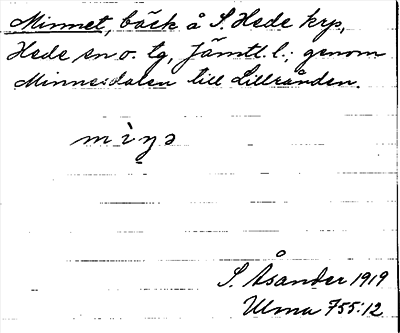 Minnet, bäck å S. Hede krp,
Hede sn o. tg, Jämtl. l.; genom
Minnesdalen till Lillrånden.
mìṉə
S. Åsander 1919
Ulma 755:12